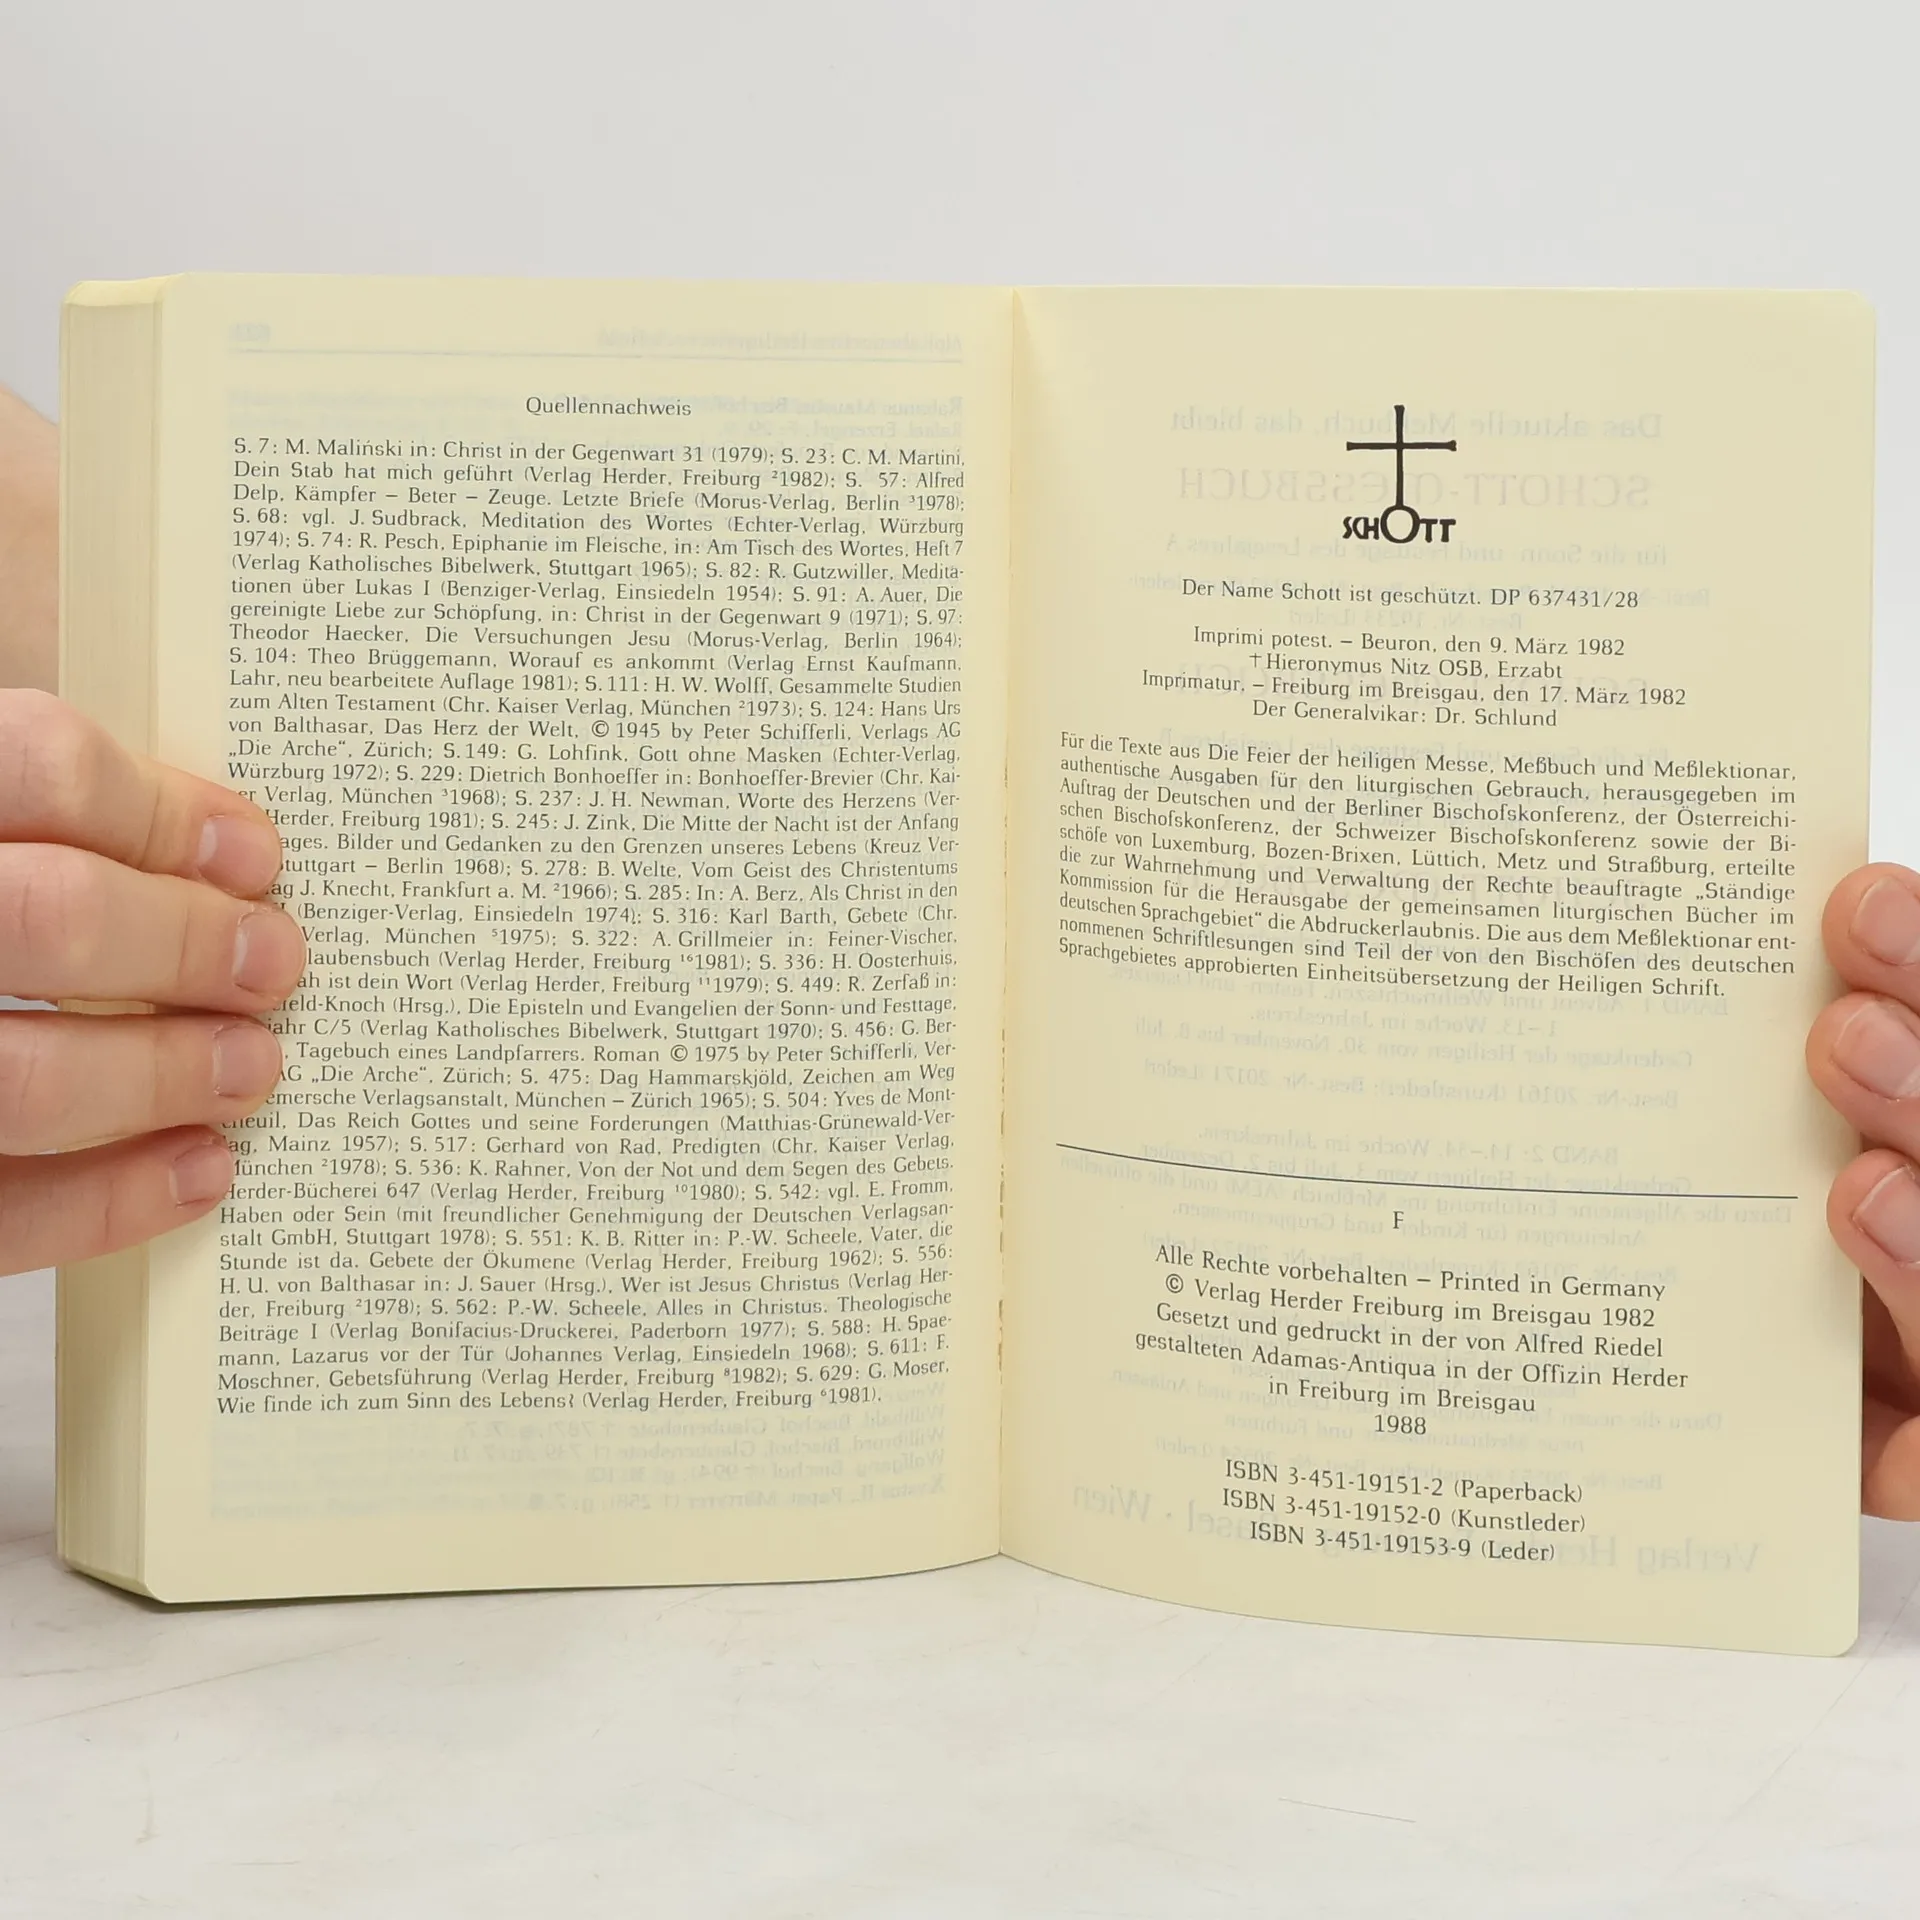 Quellennachweis
S. 7: M. Maliński in: Christ in der Gegenwart 31 (1979); S. 23: C. M. Martini,
Dein Stab hat mich geführt (Verlag Herder, Freiburg ²1982); S. 57: Alfred
Delp, Kämpfer – Beter – Zeuge. Letzte Briefe (Morus-Verlag, Berlin ³1978);
S. 68: vgl. J. Sudbrack, Meditation des Wortes (Echter-Verlag, Würzburg
1974); S. 74: R. Pesch, Epiphanie im Fleische, in: Am Tisch des Wortes, Heft 7
(Verlag Katholisches Bibelwerk, Stuttgart 1965); S. 82: R. Gutzwiller, Medita-
tionen über Lukas I (Benziger-Verlag, Einsiedeln 1954); S. 91: A. Auer, Die
gereinigte Liebe zur Schöpfung, in: Christ in der Gegenwart 9 (1971); S. 97:
Theodor Haecker, Die Versuchungen Jesu (Morus-Verlag, Berlin 1964);
S. 104: Theo Brüggemann, Worauf es ankommt (Verlag Ernst Kaufmann,
Lahr, neu bearbeitete Auflage 1981); S. 111: H. W. Wolff, Gesammelte Studien
zum Alten Testament (Chr. Kaiser Verlag, München ²1973); S. 124: Hans Urs
von Balthasar, Das Herz der Welt, © 1945 by Peter Schifferli, Verlags AG
„Die Arche“, Zürich; S. 149: G. Lohfink, Gott ohne Masken (Echter-Verlag,
Würzburg 1972); S. 229: Dietrich Bonhoeffer in: Bonhoeffer-Brevier (Chr. Kai-
er Verlag, München ³1968); S. 237: J. H. Newman, Worte des Herzens (Ver-
Herder, Freiburg 1981); S. 245: J. Zink, Die Mitte der Nacht ist der Anfang
ages. Bilder und Gedanken zu den Grenzen unseres Lebens (Kreuz Ver-
Stuttgart – Berlin 1968); S. 278: B. Welte, Vom Geist des Christentums
ag J. Knecht, Frankfurt a. M. ²1966); S. 285: In: A. Berz, Als Christ in den
(Benziger-Verlag, Einsiedeln 1974); S. 316: Karl Barth, Gebete (Chr.
Verlag, München ⁵1975); S. 322: A. Grillmeier in: Feiner-Vischer,
laubensbuch (Verlag Herder, Freiburg ¹⁶1981); S. 336: H. Oosterhuis,
ah ist dein Wort (Verlag Herder, Freiburg ¹¹1979); S. 449: R. Zerfaß in:
feld-Knoch (Hrsg.), Die Episteln und Evangelien der Sonn- und Festtage,
jahr C/5 (Verlag Katholisches Bibelwerk, Stuttgart 1970); S. 456: G. Ber-
, Tagebuch eines Landpfarrers. Roman © 1975 by Peter Schifferli, Ver-
AG „Die Arche“, Zürich; S. 475: Dag Hammarskjöld, Zeichen am Weg
emersche Verlagsanstalt, München – Zürich 1965); S. 504: Yves de Mont-
cheuil, Das Reich Gottes und seine Forderungen (Matthias-Grünewald-Ver-
ag, Mainz 1957); S. 517: Gerhard von Rad, Predigten (Chr. Kaiser Verlag,
München ²1978); S. 536: K. Rahner, Von der Not und dem Segen des Gebets.
Herder-Bücherei 647 (Verlag Herder, Freiburg ¹⁰1980); S. 542: vgl. E. Fromm,
Haben oder Sein (mit freundlicher Genehmigung der Deutschen Verlagsan-
stalt GmbH, Stuttgart 1978); S. 551: K. B. Ritter in: P.-W. Scheele, Vater, die
Stunde ist da. Gebete der Ökumene (Verlag Herder, Freiburg 1962); S. 556:
H. U. von Balthasar in: J. Sauer (Hrsg.), Wer ist Jesus Christus (Verlag Her-
der, Freiburg ²1978); S. 562: P.-W. Scheele, Alles in Christus. Theologische
Beiträge I (Verlag Bonifacius-Druckerei, Paderborn 1977); S. 588: H. Spae-
mann, Lazarus vor der Tür (Johannes Verlag, Einsiedeln 1968); S. 611: F.
Moschner, Gebetsführung (Verlag Herder, Freiburg ⁸1982); S. 629: G. Moser,
Wie finde ich zum Sinn des Lebens? (Verlag Herder, Freiburg ⁶1981).
SCHOTT
Der Name Schott ist geschützt. DP 637431/28
Imprimi potest. – Beuron, den 9. März 1982
† Hieronymus Nitz OSB, Erzabt
Imprimatur. – Freiburg im Breisgau, den 17. März 1982
Der Generalvikar: Dr. Schlund
Für die Texte aus Die Feier der heiligen Messe, Meßbuch und Meßlektionar,
authentische Ausgaben für den liturgischen Gebrauch, herausgegeben im
Auftrag der Deutschen und der Berliner Bischofskonferenz, der Österreichi-
schen Bischofskonferenz, der Schweizer Bischofskonferenz sowie der Bi-
schöfe von Luxemburg, Bozen-Brixen, Lüttich, Metz und Straßburg, erteilte
die zur Wahrnehmung und Verwaltung der Rechte beauftragte „Ständige
Kommission für die Herausgabe der gemeinsamen liturgischen Bücher im
deutschen Sprachgebiet“ die Abdruckerlaubnis. Die aus dem Meßlektionar ent-
nommenen Schriftlesungen sind Teil der von den Bischöfen des deutschen
Sprachgebietes approbierten Einheitsübersetzung der Heiligen Schrift.
F
Alle Rechte vorbehalten – Printed in Germany
© Verlag Herder Freiburg im Breisgau 1982
Gesetzt und gedruckt in der von Alfred Riedel
gestalteten Adamas-Antiqua in der Offizin Herder
in Freiburg im Breisgau
1988
ISBN 3-451-19151-2 (Paperback)
ISBN 3-451-19152-0 (Kunstleder)
ISBN 3-451-19153-9 (Leder)